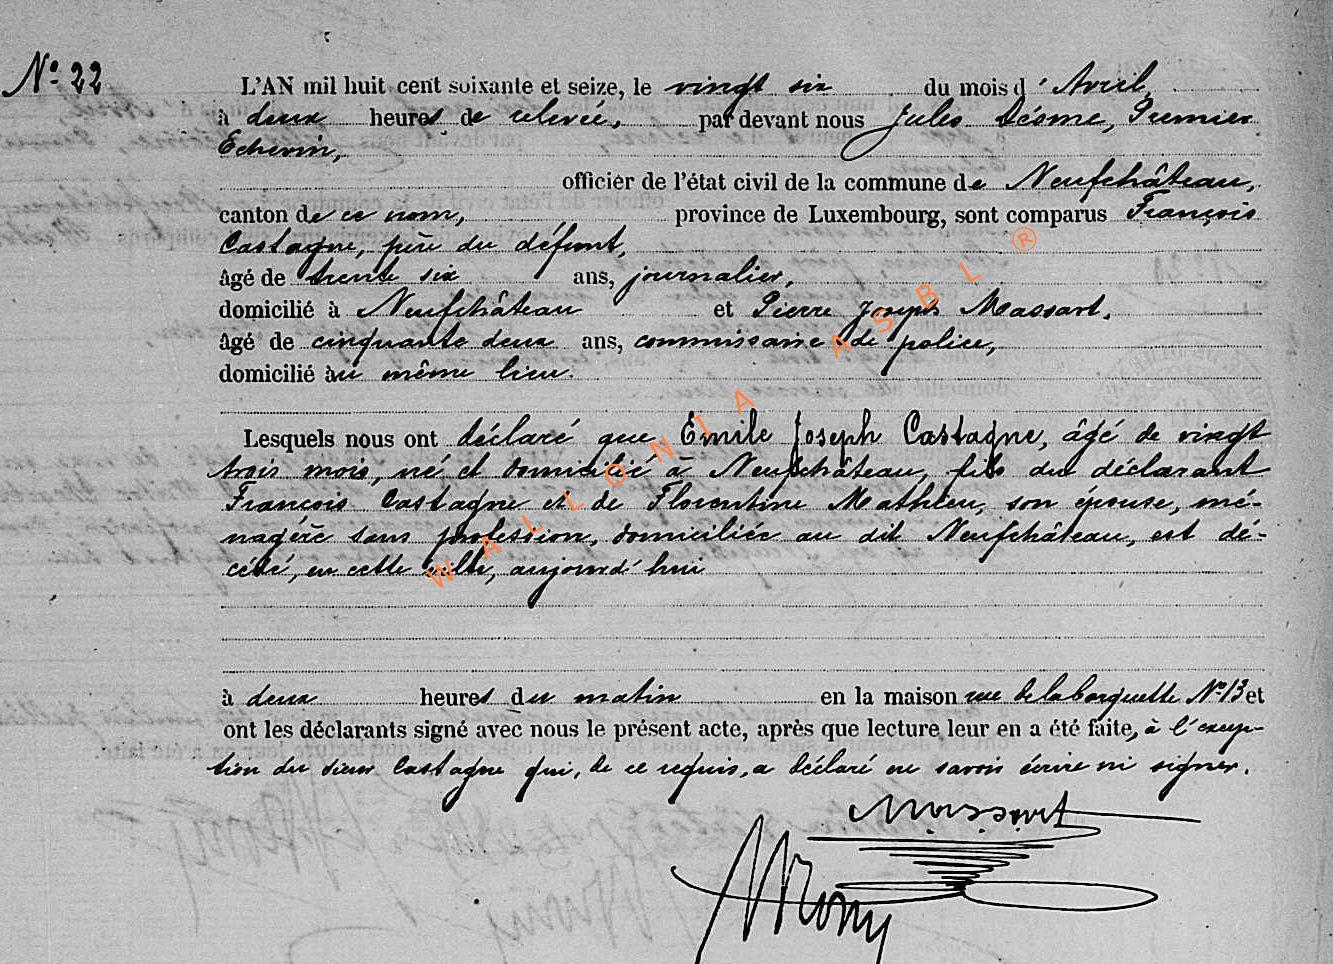 N° 22
L'AN mil huit cent soixante et seize, le vingt six du mois d'Avril,
à deux heures de relevée, par devant nous Jules Désome, Premier
Echevin,
officier de l'état civil de la commune de Neufchâteau,
canton de ce nom, province de Luxembourg, sont comparus François
Castagne, père du défunt,
âgé de trente six ans, journalier,
domicilié à Neufchâteau et Pierre Joseph Massart,
âgé de cinquante deux ans, commissaire de police,
domicilié au même lieu.
Lesquels nous ont déclaré que Emile Joseph Castagne, âgé de vingt
trois mois, né et domicilié à Neufchâteau, fils du déclarant
François Castagne et de Florentine Mathieu, son epouse, mé-
nagère sans profession, domiciliée au dit Neufchâteau, est dé-
cédé, en cette ville, aujourd'hui
à deux heures du matin en la maison rue de la Borquette N° 13 et
ont les déclarants signé avec nous le présent acte, après que lecture leur en a été faite, à l'excep-
tion du sieur Castagne qui, de ce requis, a déclaré ne savoir écrire ni signer.
Massart
WALLONIA ASBL ®